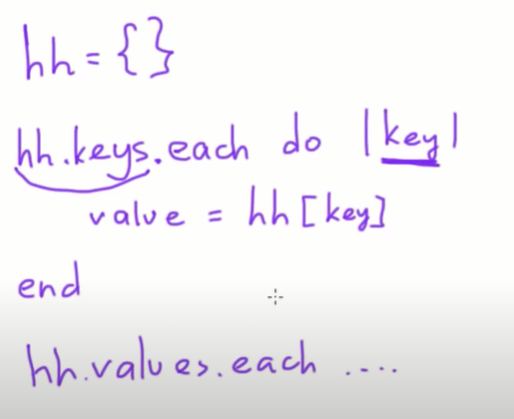 hh = {}
hh.keys.each do |key|
value = hh[key]
end
hh.values.each ....